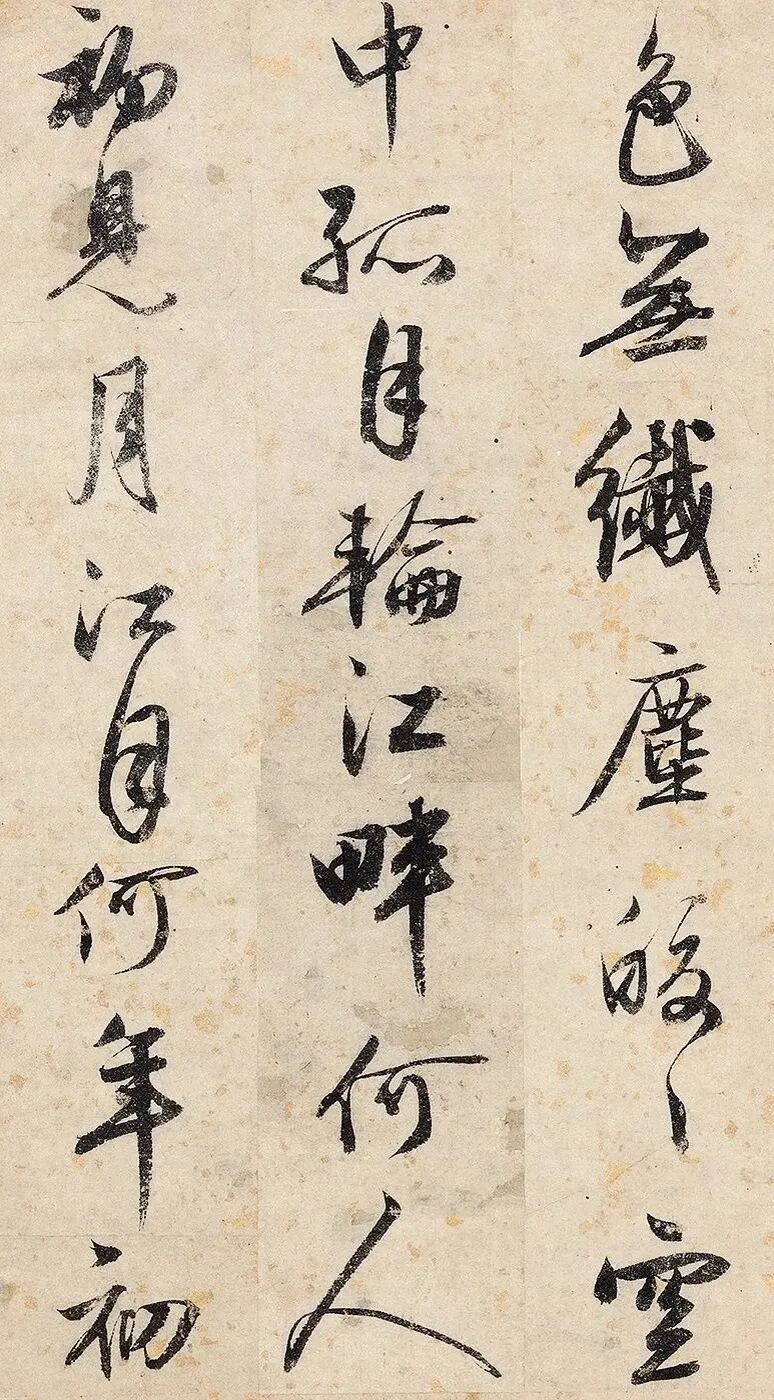 色無纖塵皎〻空
中孤月輪江畔何人
初見月江月何年初